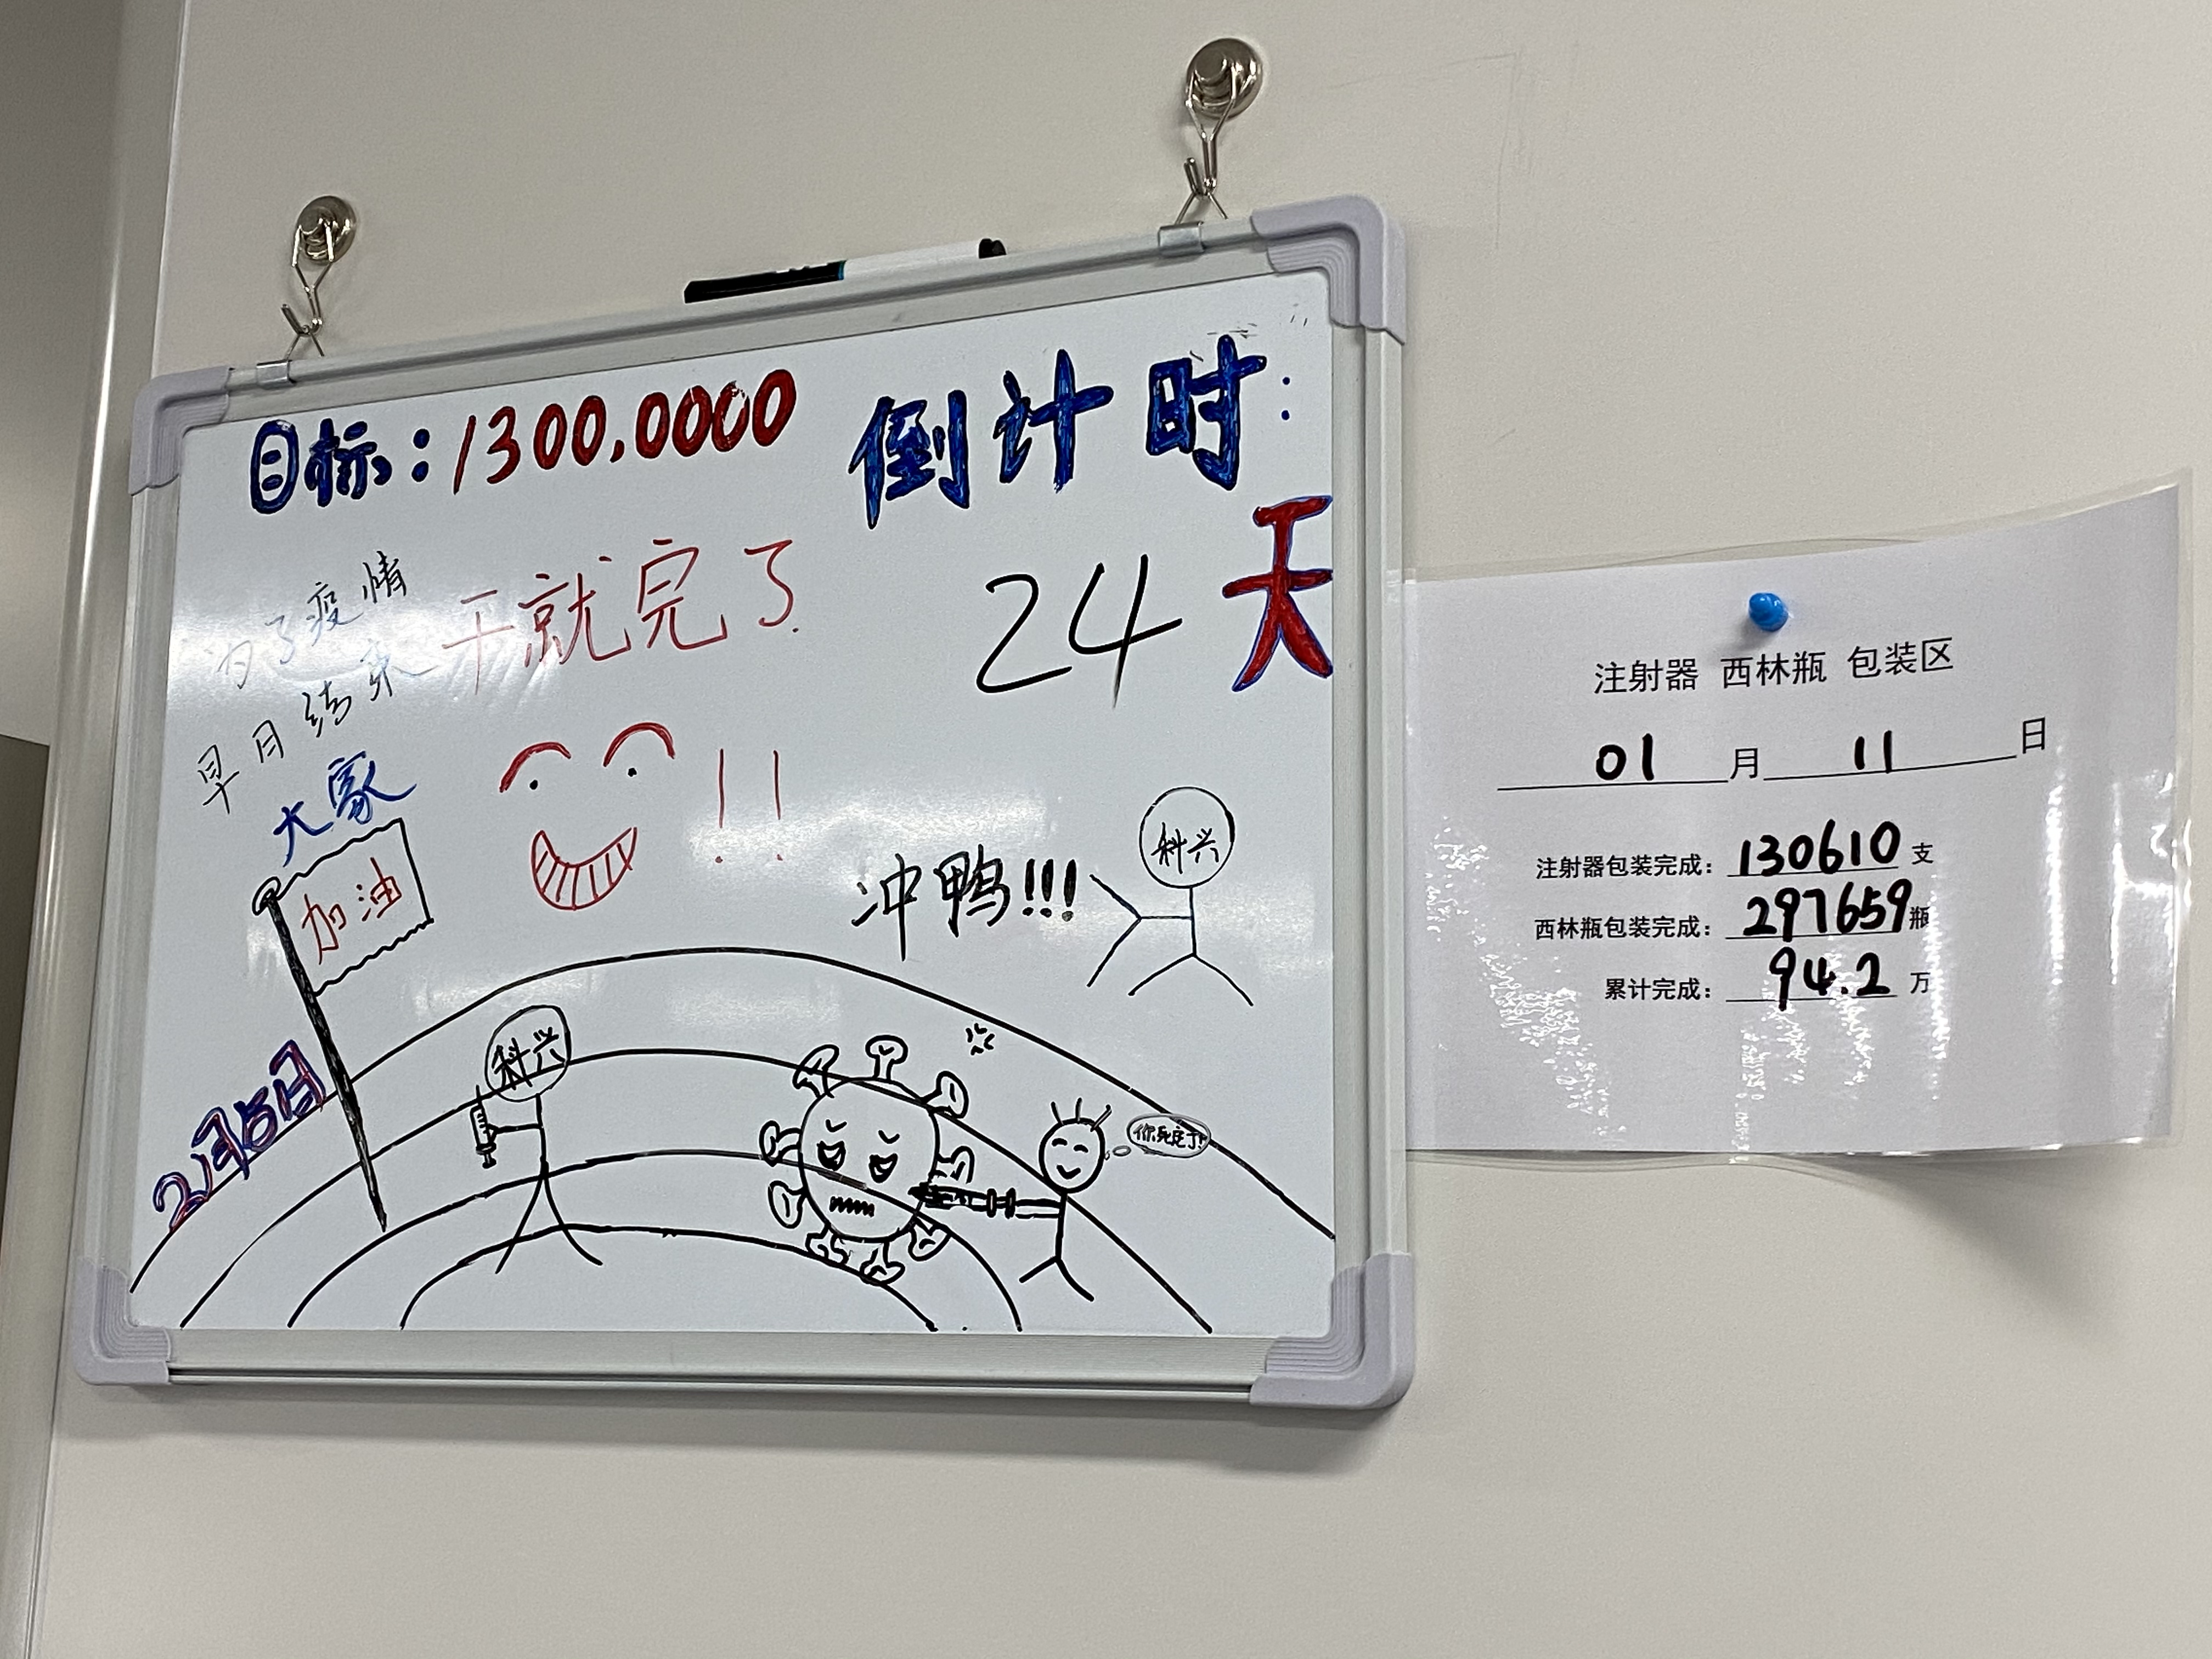 目标：1300.0000
倒计时：
24天
为了疫情
早日结束
干就完了
!!
大家
加油
冲鸭!!!
科兴
科兴
你死定了!
2月5日
注射器 西林瓶 包装区
01月11日
注射器包装完成：130610支
西林瓶包装完成：297659瓶
累计完成：94.2万